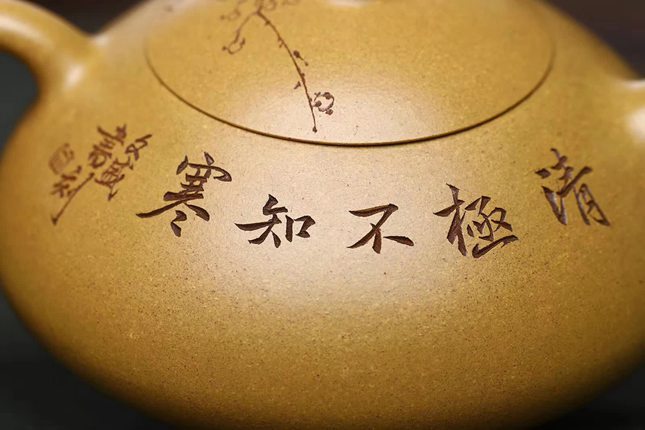 清極不知寒